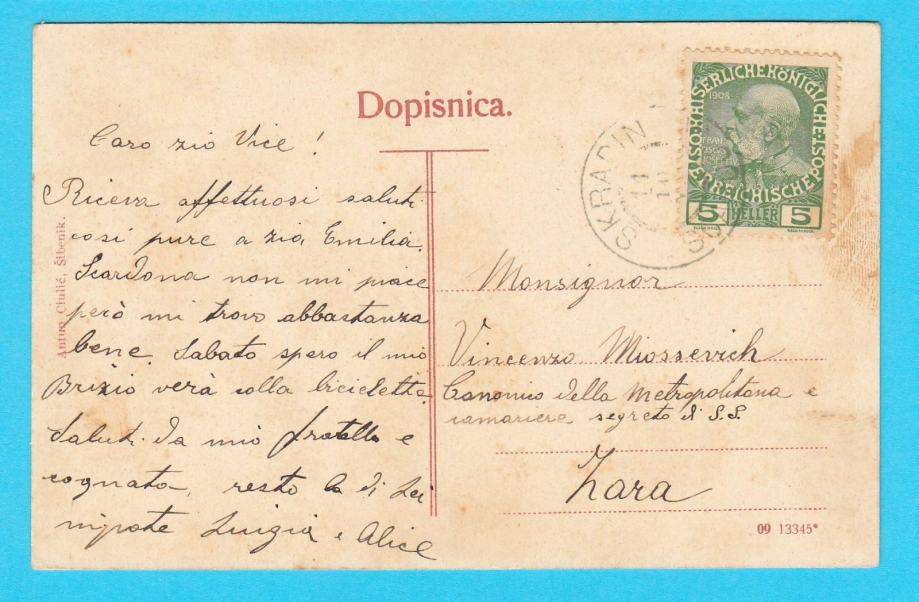 Dopisnica.
Caro zio Vice!
Riceva affettuosi saluti
così pure a zia Emilia.
Scardona non mi piace
però mi trovo abbastanza
bene. Sabato spero il mio
Brizio verà colla bicicletta.
Saluti da mio fratello e
cognata, resto la di Lei
nipote Luigia e Alice
Anton Ciulić, Šibenik.
SKRADIN
KAISERLICHE KÖNIGLICHE
ÖSTERREICHISCHE POST
1908
5 HELLER 5
Monsignor
Vincenzo Miossevich
Canonico della Metropolitana e
cameriere segreto di S.S.
Zara
09 13345*